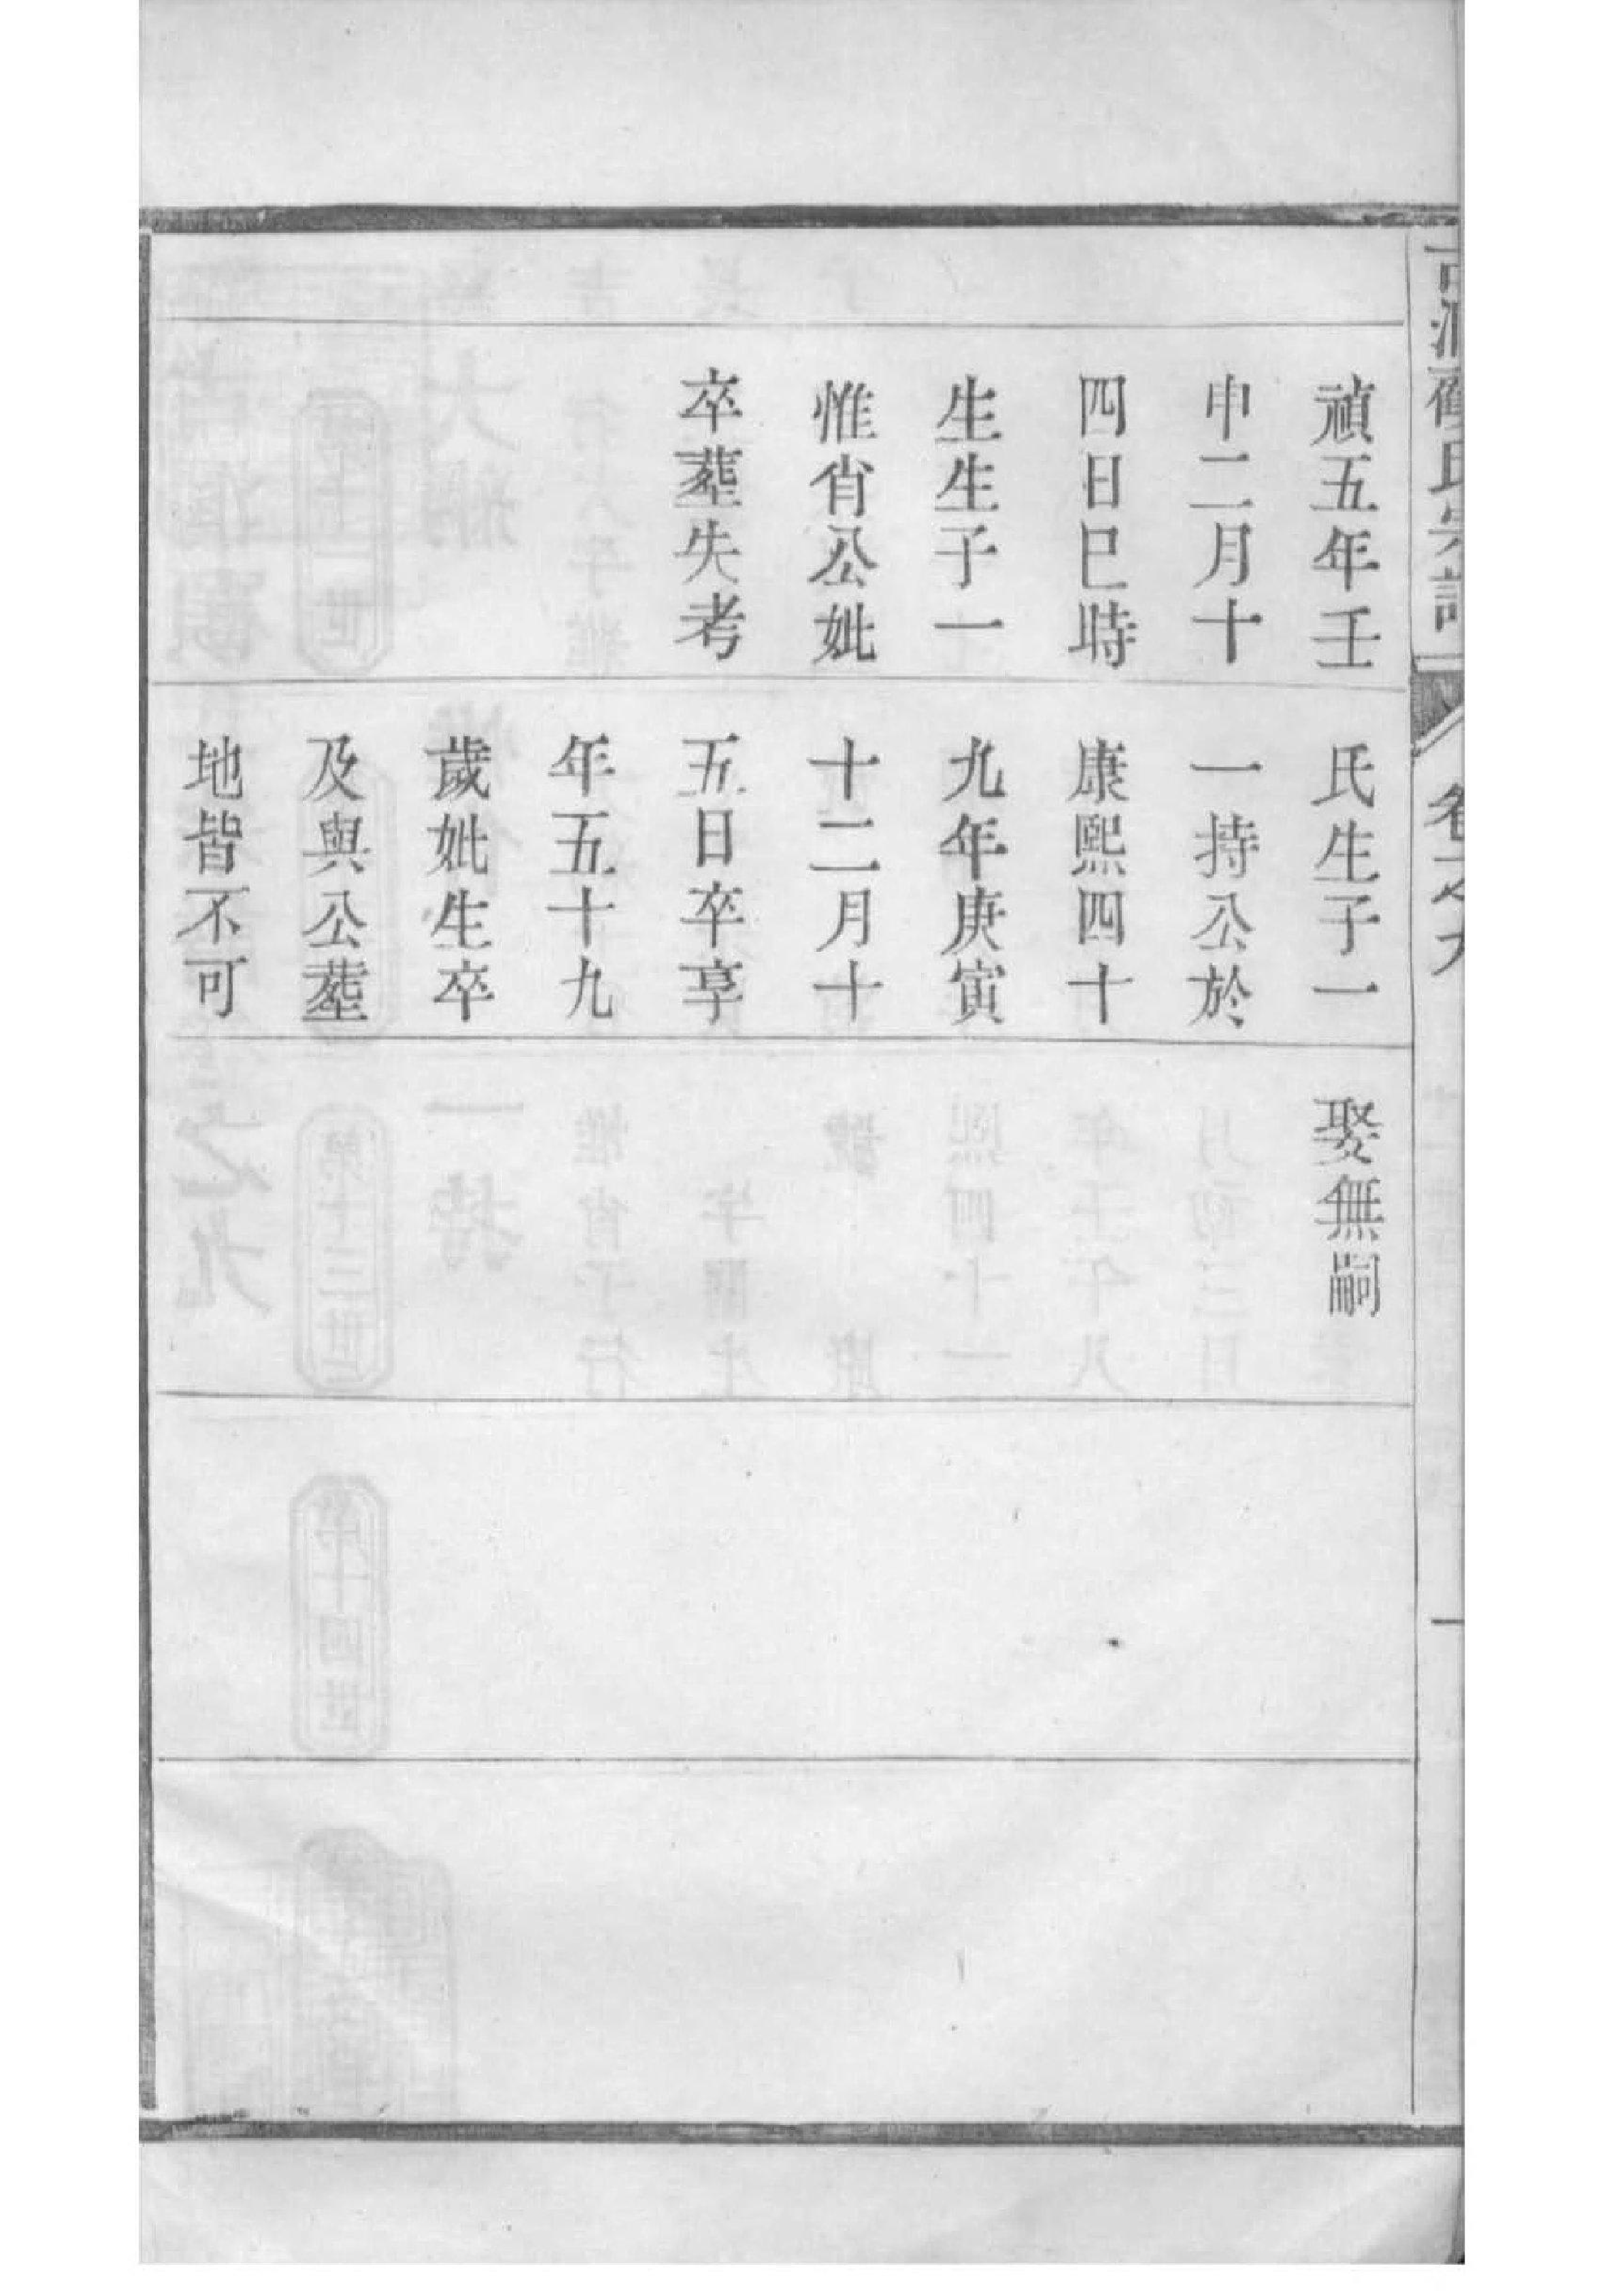 禎五年壬
申二月十
四日巳時
生生子一
惟肖公妣
卒塟失考
氏生子一
一持公於
康熙四十
九年庚寅
十二月十
五日卒享
年五十九
歲妣生卒
及與公塟
地皆不可
娶無嗣
氏宗譜
卷之九
一